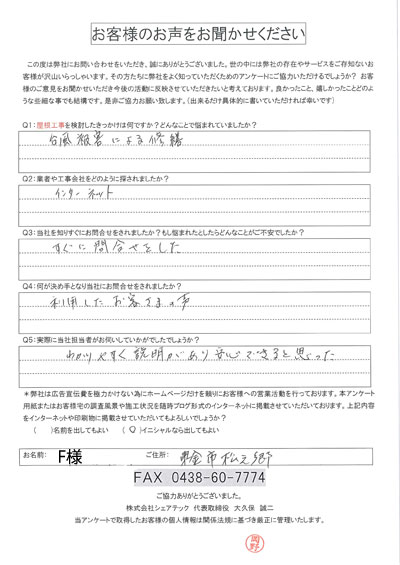 お客様のお声をお聞かせください
この度は弊社にお問い合わせをいただき、誠にありがとうございました。世の中には弊社の存在やサービスをご存知ないお
客様が沢山いらっしゃいます。その方たちに弊社をよく知っていただくためのアンケートにご協力いただけるでしょうか？ お客
様のご意見をお聞かせいただき今後の活動に反映させていただきたいと考えております。良かったこと、嬉しかったことどのよ
うな些細な事でも結構です。是非ご協力お願い致します。(出来るだけ具体的に書いていただければ幸いです)
Q1:屋根工事を検討したきっかけは何ですか？どんなことで悩まれていましたか？
台風被害による修繕
Q2:業者や工事会社をどのように探されましたか？
インターネット
Q3:当社を知りすぐにお問合せをされましたか？もし悩まれたとしたらどんなことがご不安でしたか？
すぐに問合せをした
Q4:何が決め手となり当社にお問合せをされましたか？
利用したお客さまの声
Q5:実際に当社担当者がお伺いしていかがでしたでしょうか？
わかりやすく説明があり安心できると思った
*弊社は広告宣伝費を極力かけない為にホームページだけを頼りにお客様への営業活動を行っております。本アンケート
用紙またはお客様宅の調査風景や施工状況を随時ブログ形式のインターネットに掲載させていただいております。上記内容
をインターネットや印刷物に掲載させていただいてもよろしいでしょうか？
( )名前を出してもよい ( ○ )イニシャルなら出してもよい
お名前: F様 ご住所: 東金市松之郷
FAX 0438-60-7774
ご協力ありがとうございました。
株式会社シェアテック 代表取締役 大久保 誠二
当アンケートで取得したお客様の個人情報は関係法規に基づき厳正に管理いたします。
岡野